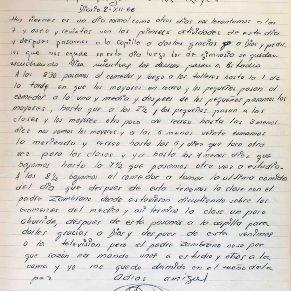 Diario 2-XII-66
Hoy viernes es un dia normal como otros dias nos levantamos a las
7 y aseo y rematos con las primeras actividades de este dia
y despues pasamos a la capilla a darles gracias a Dios y pedir
que nos ayude en este dia luego los de gimnasia se quedan
escuchando Misa mientras los demas pasan a estudio
A las 8 30 pasamos al comedor y luego a los talleres hasta la 1 de
la tarde en que los mayores en recreo y los pequeños pasan al
comedor a la una y media y despues de los pequeños pasamos los
mayores, hasta que a las 2 1/2 los pequeños pasan a las
clases y los mayores otro poco de recreo hasta las 3 menos
diez nos vamos los mayores y a las 6 menos veinte tomamos
la merienda y recreo hasta las 6 y diez que toca otra
vez para las clases y ya hasta las 8 menos diez que
bajamos hasta la 8 1/4 que pasamos otra vez a estudio
A las 8 3/4 bajamos al comedor a tomar la ultima comida
del dia que despues de esta tenemos la clase con el
padre Zambrano donde estuvieron discutiendo sobre los
examenes del medico y asi termina la clase un poco
aburrida, despues de esta pasamos a la capilla para
darles gracias a Dios y despues de esta venimos
a la television pero el padre Zambrano no se por
que razon nos mando a estudio y otros a la
cama y yo me quedo dormido en el sueño de la
paz Adios amigo!